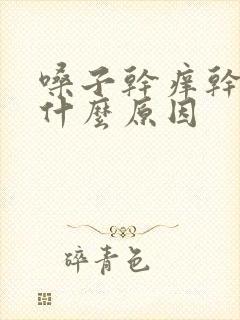 嗓子幹痒幹
什麼原因
碎青色